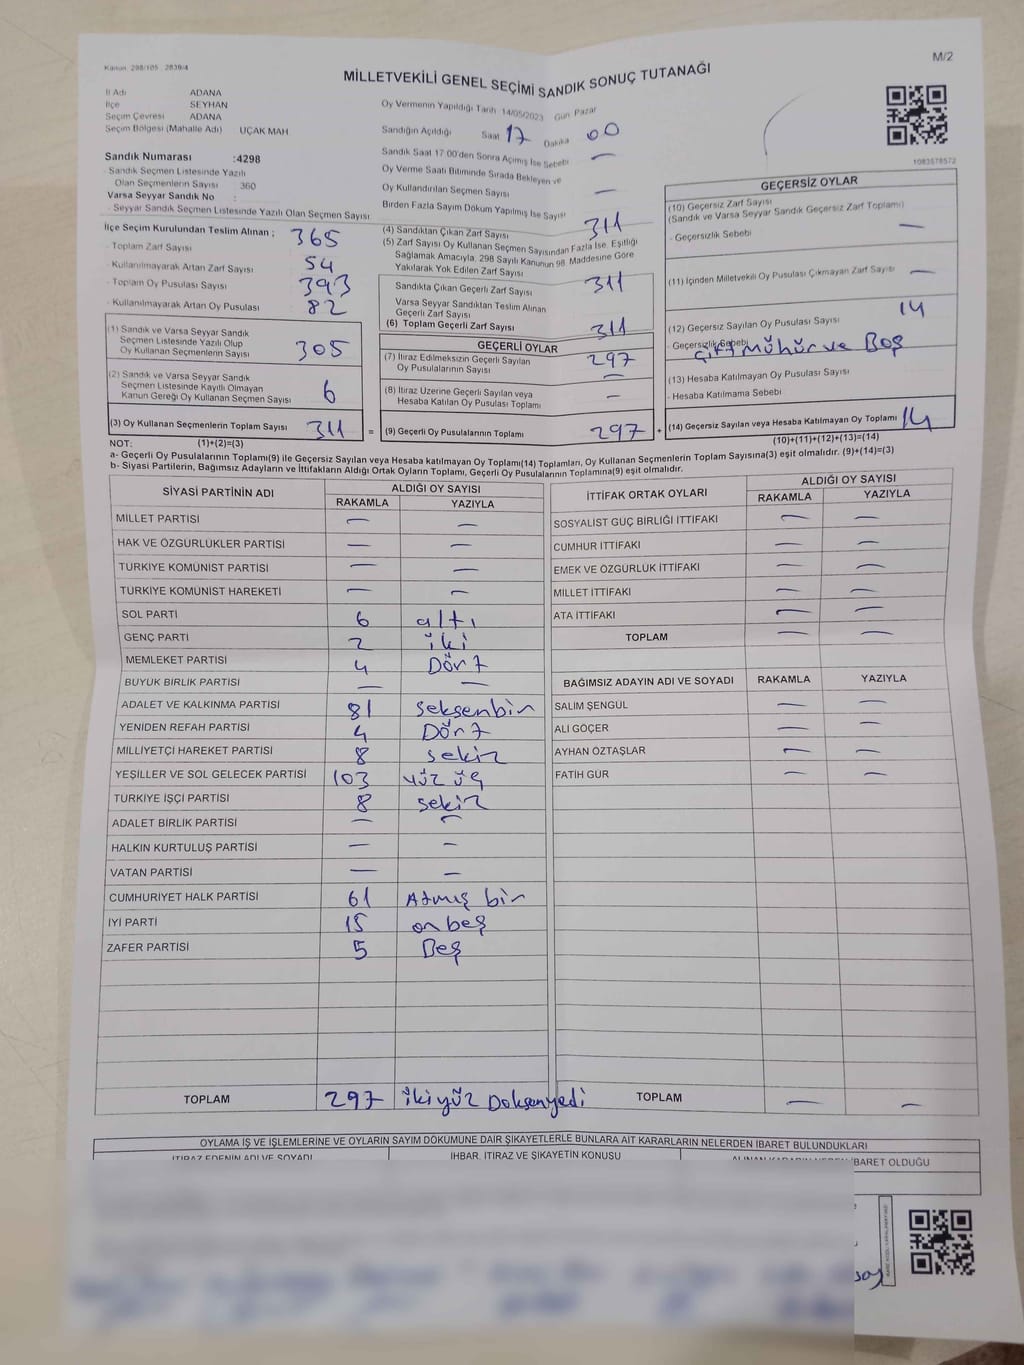 Kanun 298/105 2839/4
M/2
MİLLETVEKİLİ GENEL SEÇİMİ SANDIK SONUÇ TUTANAĞI
İl Adı ADANA
İlçe SEYHAN
Seçim Çevresi ADANA
Seçim Bölgesi (Mahalle Adı) UÇAK MAH
Sandık Numarası :4298
Sandık Seçmen Listesinde Yazılı
Olan Seçmenlerin Sayısı 360
Varsa Seyyar Sandık No :
Seyyar Sandık Seçmen Listesinde Yazılı Olan Seçmen Sayısı:
Oy Vermenin Yapıldığı Tarih 14/05/2023 Gün Pazar
Sandığın Açıldığı Saat 17 Dakika 00
Sandık Saat 17:00'den Sonra Açılmış İse Sebebi —
Oy Verme Saati Bitiminde Sırada Bekleyen ve
Oy Kullandırılan Seçmen Sayısı —
Birden Fazla Sayım Döküm Yapılmış İse Sayısı
1083578572
İlçe Seçim Kurulundan Teslim Alınan ;
- Toplam Zarf Sayısı 365
- Kullanılmayarak Artan Zarf Sayısı 54
- Toplam Oy Pusulası Sayısı 393
- Kullanılmayarak Artan Oy Pusulası 82
(1) Sandık ve Varsa Seyyar Sandık
Seçmen Listesinde Yazılı Olup
Oy Kullanan Seçmenlerin Sayısı 305
(2) Sandık ve Varsa Seyyar Sandık
Seçmen Listesinde Kayıtlı Olmayan
Kanun Gereği Oy Kullanan Seçmen Sayısı 6
(3) Oy Kullanan Seçmenlerin Toplam Sayısı 311 =
(4) Sandıktan Çıkan Zarf Sayısı 311
(5) Zarf Sayısı Oy Kullanan Seçmen Sayısından Fazla İse, Eşitliği
Sağlamak Amacıyla, 298 Sayılı Kanunun 98. Maddesine Göre
Yakılarak Yok Edilen Zarf Sayısı
Sandıkta Çıkan Geçerli Zarf Sayısı 311
Varsa Seyyar Sandıktan Teslim Alınan
Geçerli Zarf Sayısı
(6) Toplam Geçerli Zarf Sayısı 311
GEÇERLİ OYLAR
(7) İtiraz Edilmeksizin Geçerli Sayılan
Oy Pusulalarının Sayısı 297
—
(8) İtiraz Üzerine Geçerli Sayılan veya
Hesaba Katılan Oy Pusulası Toplamı —
(9) Geçerli Oy Pusulalarının Toplamı 297 +
GEÇERSİZ OYLAR
(10) Geçersiz Zarf Sayısı
(Sandık ve Varsa Seyyar Sandık Geçersiz Zarf Toplamı)
- Geçersizlik Sebebi —
(11) İçinden Milletvekili Oy Pusulası Çıkmayan Zarf Sayısı —
(12) Geçersiz Sayılan Oy Pusulası Sayısı 14
- Geçersizlik Sebebi Çift mühür ve Boş
(13) Hesaba Katılmayan Oy Pusulası Sayısı
- Hesaba Katılmama Sebebi
(14) Geçersiz Sayılan veya Hesaba Katılmayan Oy Toplamı 14
NOT: (1)+(2)=(3) (10)+(11)+(12)+(13)=(14)
a- Geçerli Oy Pusulalarının Toplamı(9) ile Geçersiz Sayılan veya Hesaba katılmayan Oy Toplamı(14) Toplamları, Oy Kullanan Seçmenlerin Toplam Sayısına(3) eşit olmalıdır. (9)+(14)=(3)
b- Siyasi Partilerin, Bağımsız Adayların ve İttifakların Aldığı Ortak Oyların Toplamı, Geçerli Oy Pusulalarının Toplamına(9) eşit olmalıdır.
SİYASİ PARTİNİN ADI ALDIĞI OY SAYISI
RAKAMLA YAZIYLA
MİLLET PARTİSİ — —
HAK VE ÖZGÜRLÜKLER PARTİSİ — —
TÜRKİYE KOMÜNİST PARTİSİ — —
TÜRKİYE KOMÜNİST HAREKETİ — —
SOL PARTİ 6 altı
GENÇ PARTİ 2 iki
MEMLEKET PARTİSİ 4 Dört
BÜYÜK BİRLİK PARTİSİ — —
ADALET VE KALKINMA PARTİSİ 81 seksenbir
YENİDEN REFAH PARTİSİ 4 Dört
MİLLİYETÇİ HAREKET PARTİSİ 8 sekiz
YEŞİLLER VE SOL GELECEK PARTİSİ 103 yüz üç
TÜRKİYE İŞÇİ PARTİSİ 8 sekiz
ADALET BİRLİK PARTİSİ — —
HALKIN KURTULUŞ PARTİSİ — —
VATAN PARTİSİ — —
CUMHURİYET HALK PARTİSİ 61 Atmış bir
İYİ PARTİ 15 onbeş
ZAFER PARTİSİ 5 Beş
TOPLAM 297 ikiyüz Doksanyedi
İTTİFAK ORTAK OYLARI ALDIĞI OY SAYISI
RAKAMLA YAZIYLA
SOSYALİST GÜÇ BİRLİĞİ İTTİFAKI — —
CUMHUR İTTİFAKI — —
EMEK VE ÖZGÜRLÜK İTTİFAKI — —
MİLLET İTTİFAKI — —
ATA İTTİFAKI — —
TOPLAM — —
BAĞIMSIZ ADAYIN ADI VE SOYADI RAKAMLA YAZIYLA
SALİM ŞENGÜL — —
ALİ GÖÇER — —
AYHAN ÖZTAŞLAR — —
FATİH GÜR — —
TOPLAM — —
OYLAMA İŞ VE İŞLEMLERİNE VE OYLARIN SAYIM DÖKÜMÜNE DAİR ŞİKAYETLERLE BUNLARA AİT KARARLARIN NELERDEN İBARET BULUNDUKLARI
İTİRAZ EDENİN ADI VE SOYADI İHBAR, İTİRAZ VE ŞİKAYETİN KONUSU ALINAN KARARIN NEDEN İBARET OLDUĞU